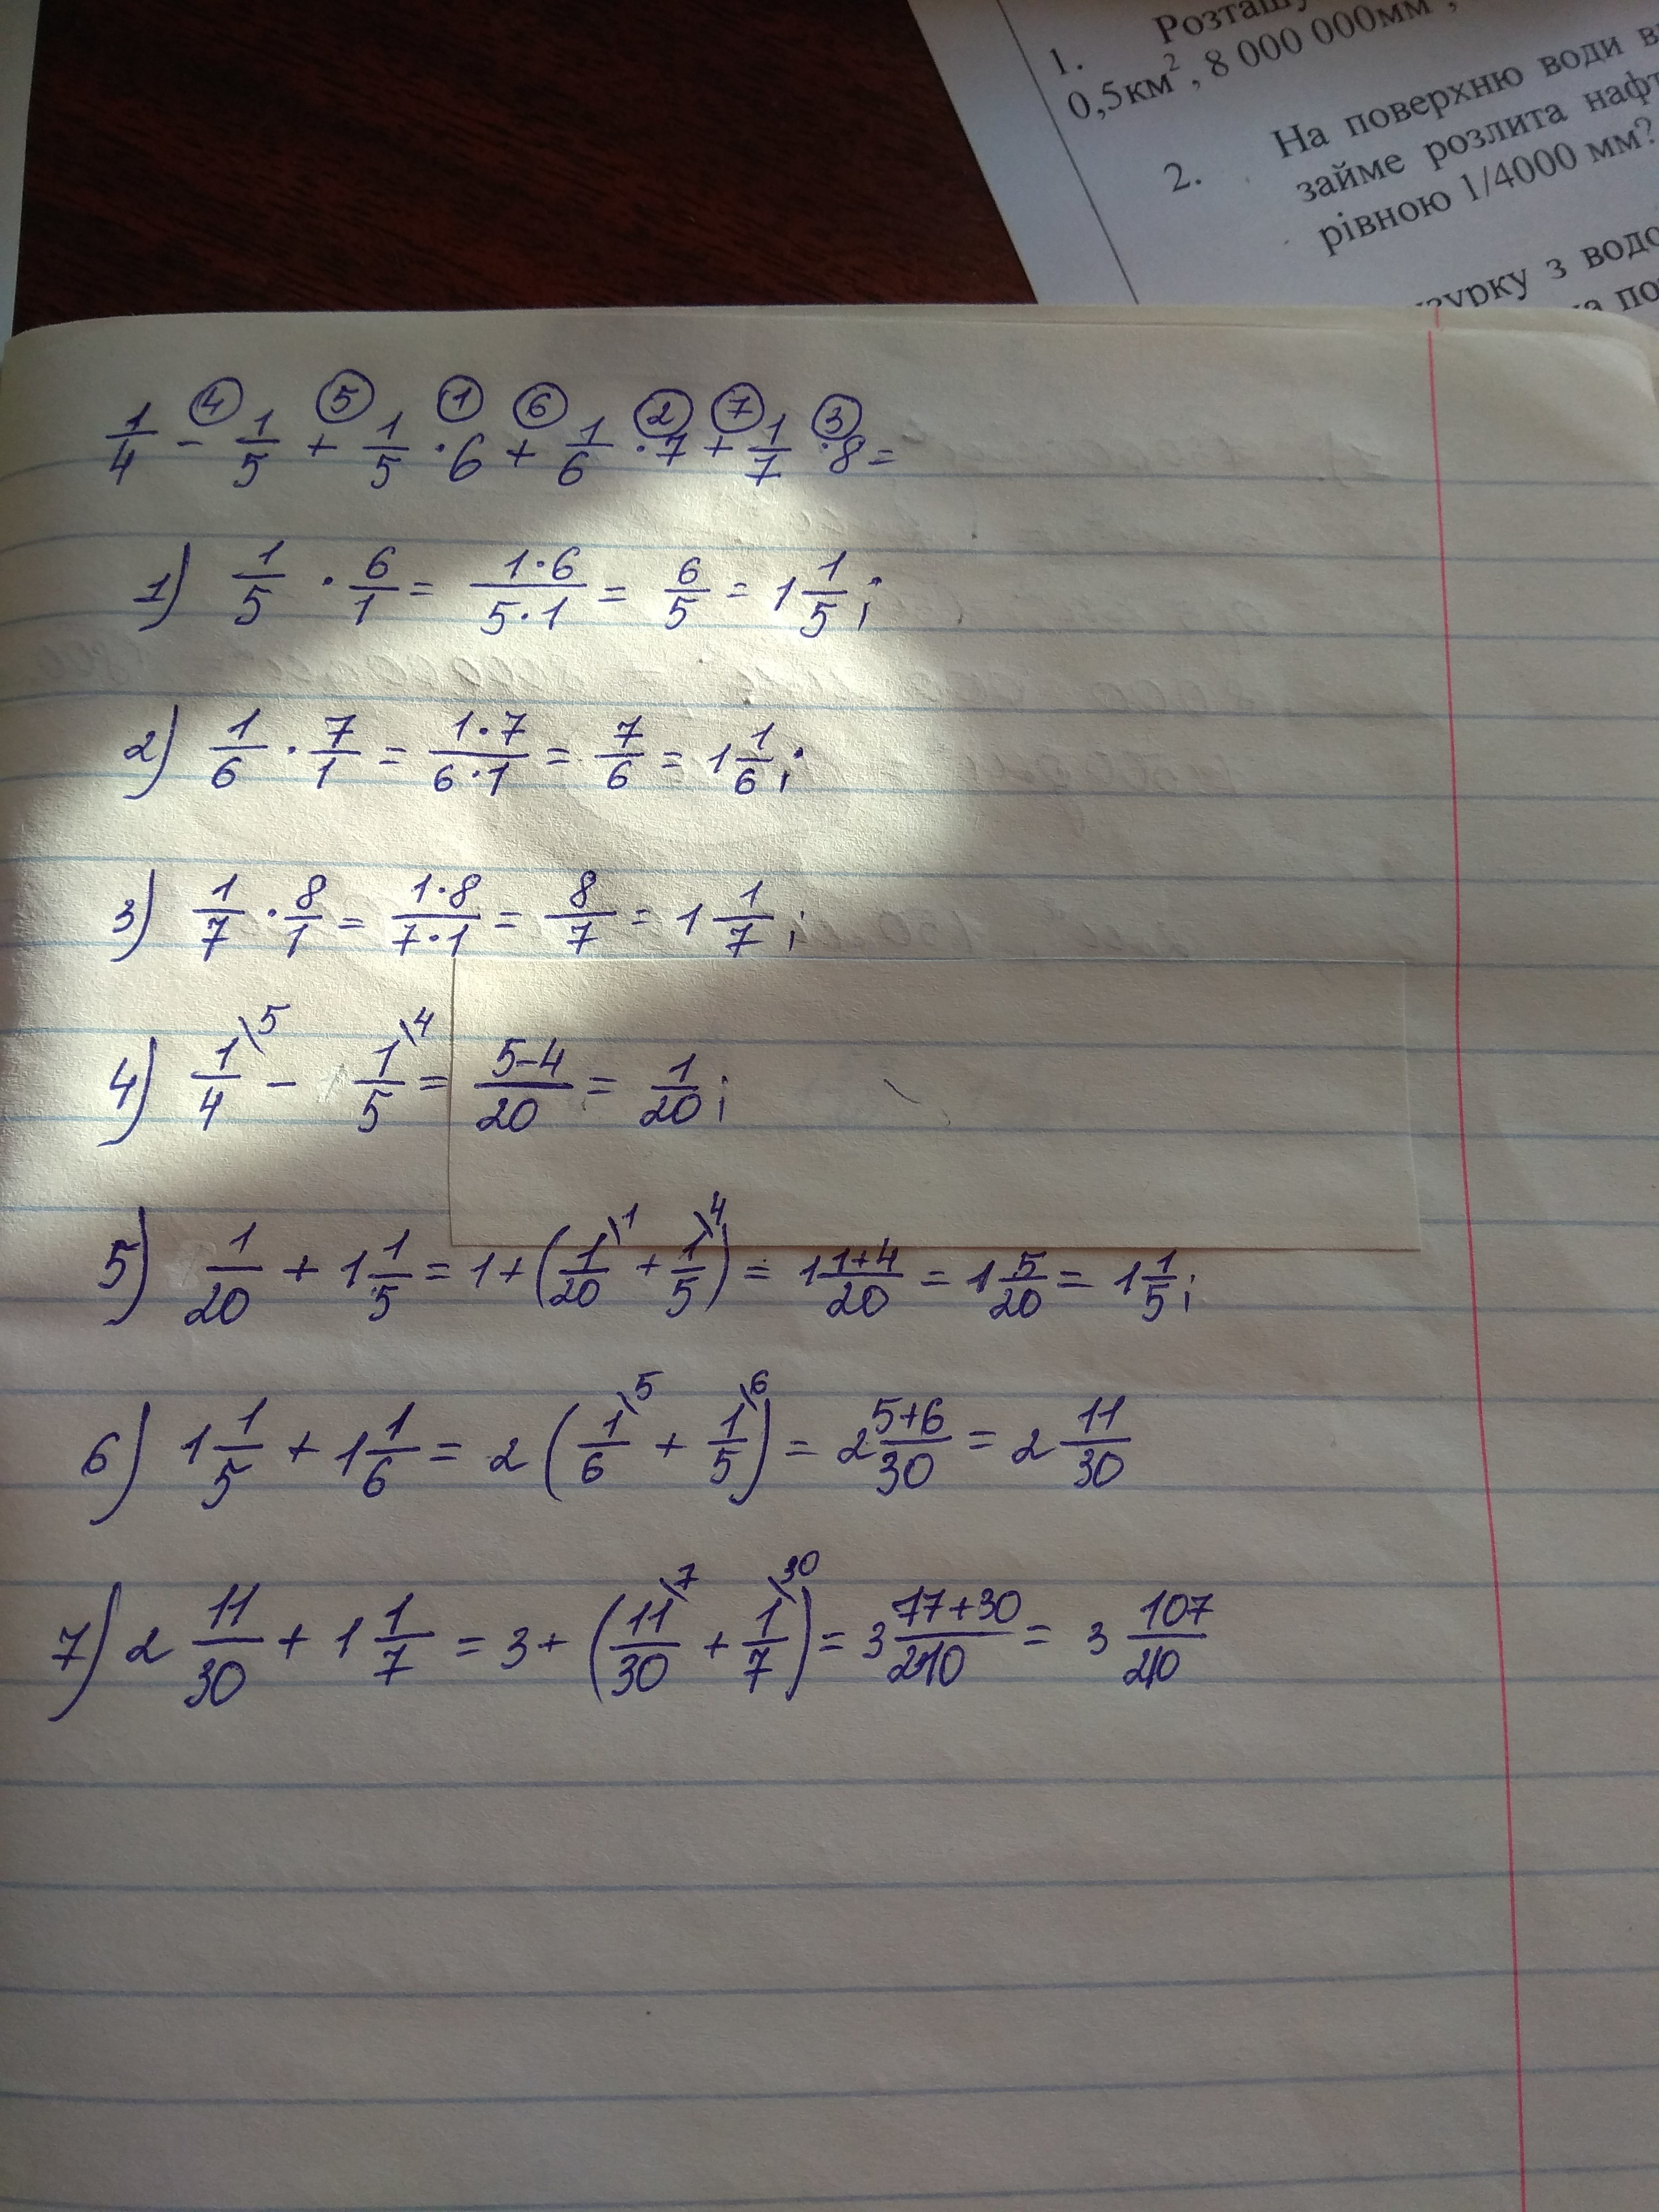 1. Розташу
0,5км², 8 000 000мм²,
2. На поверхню води в
займе розлита нафт
рівною 1/4000 мм?
з водо
④ ⑤ ① ⑥ ② ⑦ ③
1/4 - 1/5 + 1/5 · 6 + 1/6 · 7 + 1/7 · 8 =
1) 1/5 · 6/1 = 1·6/5·1 = 6/5 = 1 1/5;
2) 1/6 · 7/1 = 1·7/6·1 = 7/6 = 1 1/6;
3) 1/7 · 8/1 = 1·8/7·1 = 8/7 = 1 1/7;
4) 1/4 \5 - 1/5 \4 = 5-4/20 = 1/20;
5) 1/20 + 1 1/5 = 1 + (1/20 \1 + 1/5 \4) = 1 1+4/20 = 1 5/20 = 1 1/5;
6) 1 1/5 + 1 1/6 = 2 (1/6 \5 + 1/5 \6) = 2 5+6/30 = 2 11/30
7) 2 11/30 + 1 1/7 = 3 + (11/30 \7 + 1/7 \30) = 3 77+30/210 = 3 107/210